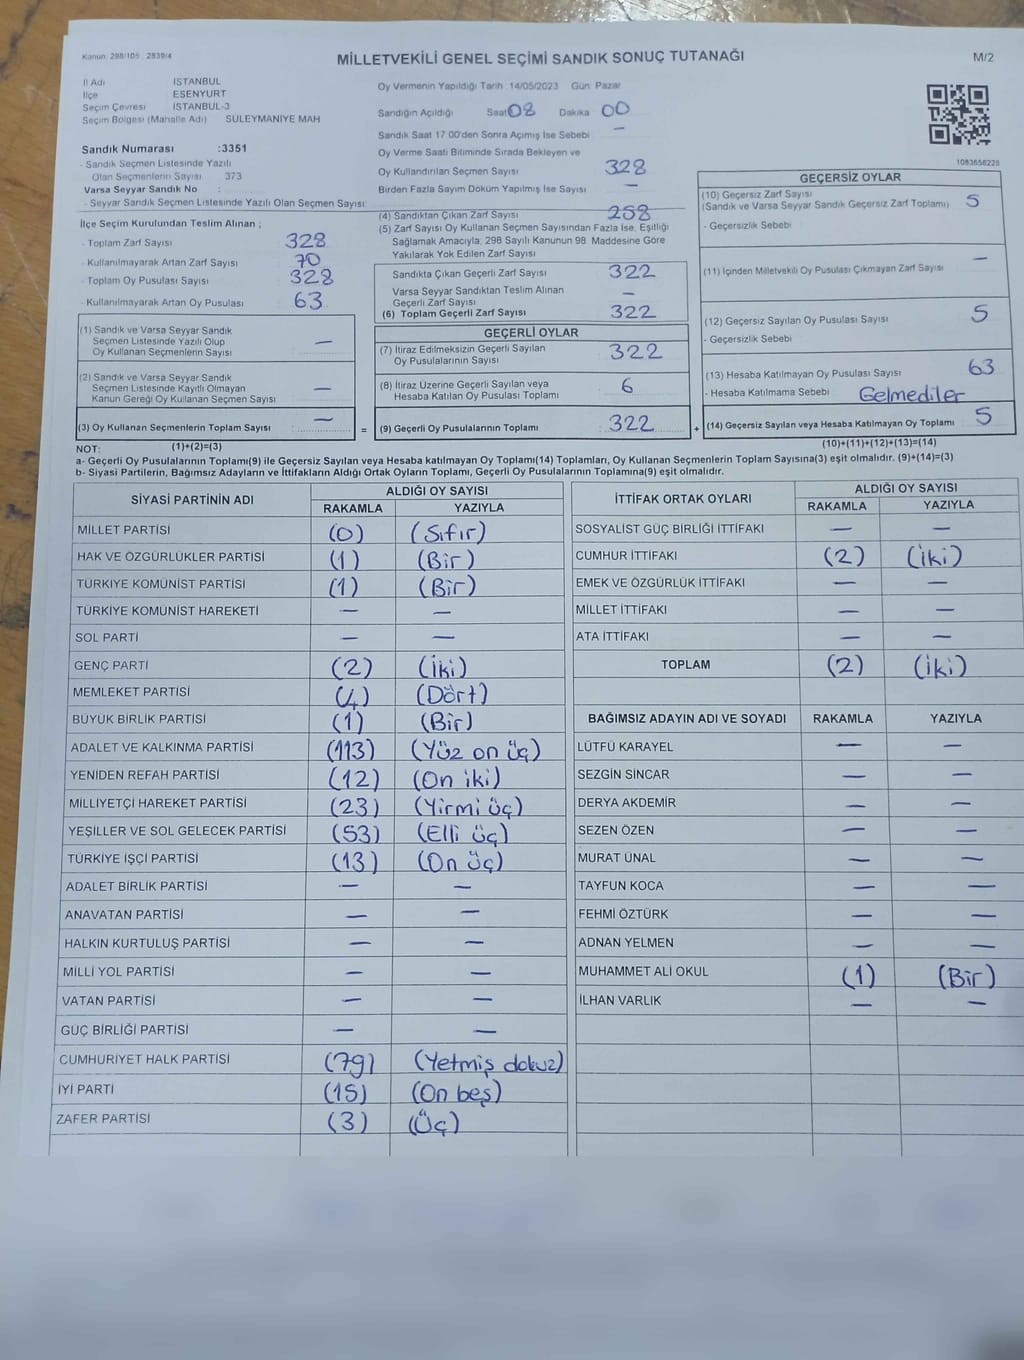 Kanun: 298/105 2839/4
MİLLETVEKİLİ GENEL SEÇİMİ SANDIK SONUÇ TUTANAĞI
M/2
İl Adı İSTANBUL
İlçe ESENYURT
Seçim Çevresi İSTANBUL-3
Seçim Bölgesi (Mahalle Adı) SÜLEYMANİYE MAH
Sandık Numarası :3351
- Sandık Seçmen Listesinde Yazılı
Olan Seçmenlerin Sayısı 373
Varsa Seyyar Sandık No :
- Seyyar Sandık Seçmen Listesinde Yazılı Olan Seçmen Sayısı
İlçe Seçim Kurulundan Teslim Alınan ;
- Toplam Zarf Sayısı 328
- Kullanılmayarak Artan Zarf Sayısı 70
- Toplam Oy Pusulası 328
- Kullanılmayarak Artan Oy Pusulası 63
(1) Sandık ve Varsa Seyyar Sandık
Seçmen Listesinde Yazılı Olup
Oy Kullanan Seçmenlerin Sayısı —
(2) Sandık ve Varsa Seyyar Sandık
Seçmen Listesinde Kayıtlı Olmayan
Kanun Gereği Oy Kullanan Seçmen Sayısı —
(3) Oy Kullanan Seçmenlerin Toplam Sayısı —
Oy Vermenin Yapıldığı Tarih 14/05/2023 Gün: Pazar
Sandığın Açıldığı Saat 08 Dakika 00
Sandık Saat 17:00'den Sonra Açımış İse Sebebi —
Oy Verme Saati Bitiminde Sırada Bekleyen ve
Oy Kullandırılan Seçmen Sayısı 328
Birden Fazla Sayım Döküm Yapılmış İse Sayısı —
(4) Sandıktan Çıkan Zarf Sayısı 258
(5) Zarf Sayısı Oy Kullanan Seçmen Sayısından Fazla İse, Eşitliği
Sağlamak Amacıyla, 298 Sayılı Kanunun 98. Maddesine Göre
Yakılarak Yok Edilen Zarf Sayısı
Sandıkta Çıkan Geçerli Zarf Sayısı 322
Varsa Seyyar Sandıktan Teslim Alınan
Geçerli Zarf Sayısı —
(6) Toplam Geçerli Zarf Sayısı 322
GEÇERLİ OYLAR
(7) İtiraz Edilmeksizin Geçerli Sayılan
Oy Pusulalarının Sayısı 322
(8) İtiraz Üzerine Geçerli Sayılan veya
Hesaba Katılan Oy Pusulası Toplamı 6
= (9) Geçerli Oy Pusulalarının Toplamı 322
1083658228
GEÇERSİZ OYLAR
(10) Geçersiz Zarf Sayısı
(Sandık ve Varsa Seyyar Sandık Geçersiz Zarf Toplamı) 5
- Geçersizlik Sebebi
(11) İçinden Milletvekili Oy Pusulası Çıkmayan Zarf Sayısı —
(12) Geçersiz Sayılan Oy Pusulası Sayısı 5
- Geçersizlik Sebebi
(13) Hesaba Katılmayan Oy Pusulası Sayısı 63
- Hesaba Katılmama Sebebi Gelmediler
+ (14) Geçersiz Sayılan veya Hesaba Katılmayan Oy Toplamı 5
NOT: (1)+(2)=(3) (10)+(11)+(12)+(13)=(14)
a- Geçerli Oy Pusulalarının Toplamı(9) ile Geçersiz Sayılan veya Hesaba katılmayan Oy Toplamı(14) Toplamları, Oy Kullanan Seçmenlerin Toplam Sayısına(3) eşit olmalıdır. (9)+(14)=(3)
b- Siyasi Partilerin, Bağımsız Adayların ve İttifakların Aldığı Ortak Oyların Toplamı, Geçerli Oy Pusulalarının Toplamına(9) eşit olmalıdır.
SİYASİ PARTİNİN ADI ALDIĞI OY SAYISI
RAKAMLA YAZIYLA
MİLLET PARTİSİ (0) (Sıfır)
HAK VE ÖZGÜRLÜKLER PARTİSİ (1) (Bir)
TÜRKİYE KOMÜNİST PARTİSİ (1) (Bir)
TÜRKİYE KOMÜNİST HAREKETİ — —
SOL PARTİ — —
GENÇ PARTİ (2) (İki)
MEMLEKET PARTİSİ (4) (Dört)
BÜYÜK BİRLİK PARTİSİ (1) (Bir)
ADALET VE KALKINMA PARTİSİ (113) (Yüz on üç)
YENİDEN REFAH PARTİSİ (12) (On iki)
MİLLİYETÇİ HAREKET PARTİSİ (23) (Yirmi üç)
YEŞİLLER VE SOL GELECEK PARTİSİ (53) (Elli üç)
TÜRKİYE İŞÇİ PARTİSİ (13) (On üç)
ADALET BİRLİK PARTİSİ — —
ANAVATAN PARTİSİ — —
HALKIN KURTULUŞ PARTİSİ — —
MİLLİ YOL PARTİSİ — —
VATAN PARTİSİ — —
GÜÇ BİRLİĞİ PARTİSİ — —
CUMHURİYET HALK PARTİSİ (79) (Yetmiş dokuz)
İYİ PARTİ (15) (On beş)
ZAFER PARTİSİ (3) (Üç)
İTTİFAK ORTAK OYLARI ALDIĞI OY SAYISI
RAKAMLA YAZIYLA
SOSYALİST GÜÇ BİRLİĞİ İTTİFAKI — —
CUMHUR İTTİFAKI (2) (İki)
EMEK VE ÖZGÜRLÜK İTTİFAKI — —
MİLLET İTTİFAKI — —
ATA İTTİFAKI — —
TOPLAM (2) (İki)
BAĞIMSIZ ADAYIN ADI VE SOYADI RAKAMLA YAZIYLA
LÜTFÜ KARAYEL — —
SEZGİN SİNCAR — —
DERYA AKDEMİR — —
SEZEN ÖZEN — —
MURAT ÜNAL — —
TAYFUN KOCA — —
FEHMİ ÖZTÜRK — —
ADNAN YELMEN — —
MUHAMMET ALİ OKUL (1) (Bir)
İLHAN VARLIK — —